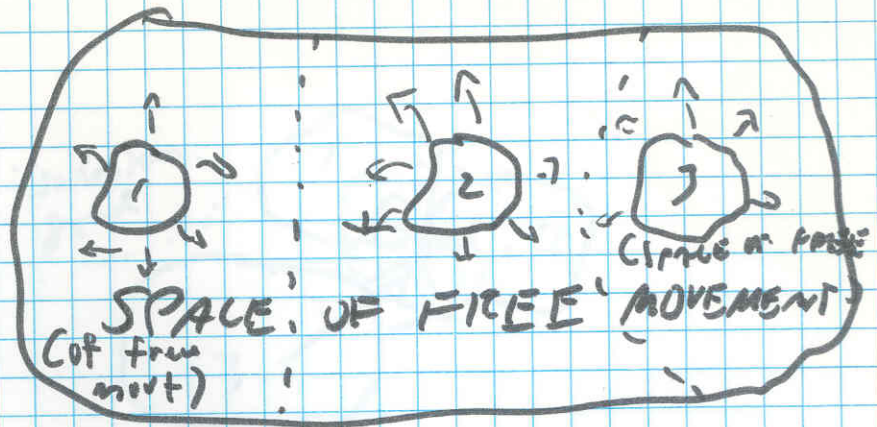 1 2 3
(SPACE OF FREE
SPACE OF FREE MOVEMENT
(of free
movt)